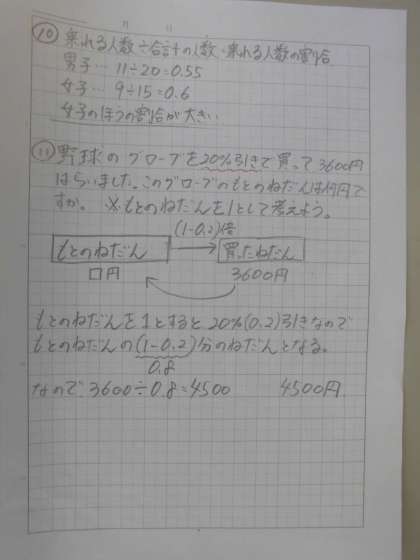 ⑩ 乗れる人数÷合計の人数=乗れる人数の割合
男子… 11÷20=0.55
女子… 9÷15=0.6
女子のほうの割合が大きい
⑪ 野球のグローブを20%引きで買って3600円
はらいました。このグローブのもとのねだんは何円で
すか。 ※もとのねだんを1として考えよう。
(1-0.2)倍
もとのねだん → 買ったねだん
□円 3600円
もとのねだんを1とすると20%(0.2)引きなので
もとのねだんの(1-0.2)分のねだんとなる。
0.8
なので 3600÷0.8=4500 4500円